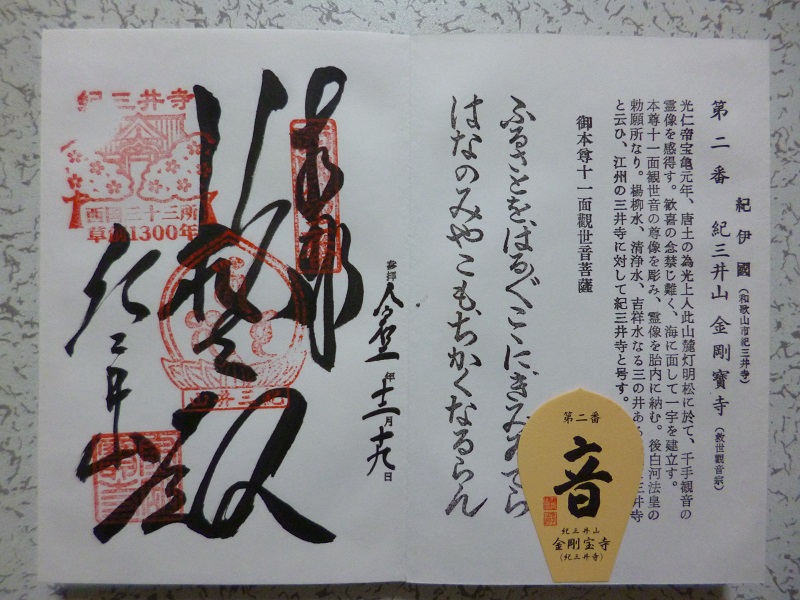 紀伊國(和歌山市紀三井寺)
第二番 紀三井山 金剛寶寺(救世観音宗)
光仁帝宝亀元年、唐土の為光上人此山麓灯明松に於て、千手観音の
霊像を感得す。歓喜の念禁じ難く、海に面して一宇を建立す。
本尊十一面観世音の尊像を彫み、霊像を胎内に納む。後白河法皇の
勅願所なり。楊柳水、清浄水、吉祥水なる三の井あ 三井寺
と云ひ、江州の三井寺に対して紀三井寺と号す。
御本尊十一面觀世音菩薩
ふるさとをはるぐこゝにきみゐでら
はなのみやこもちかくなるらん
第二番
音
紀三井山
金剛宝寺
(紀三井寺)
奉拝
年十二月十九日
紀三井寺
西国三十三所
草創1300年
紀三井寺